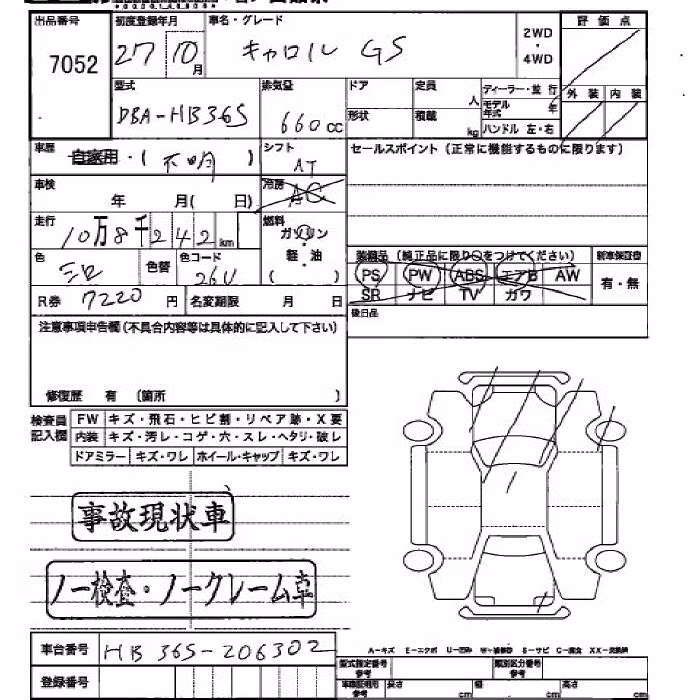 出品番号 初度登録年月 車名・グレード 2WD・4WD 評価点
7052 27 10月 キャロル GS
外装 内装
型式 排気量 ドア 定員 人 ディーラー・並行
DBA-HB36S 660cc 形状 積載 kg モデル年式 年
ハンドル 左・右
車歴 自家用・(不明) シフト AT セールスポイント(正常に機能するものに限ります)
車検 年 月(日) 冷房 AC
走行 10万8千242km 燃料 ガソリン・軽・油( )
色 シロ 色替 色コード 26U
装備品(純正品に限り○をつけてください) 新車保証書
PS PW ABS エアB AW 有・無
SR ナビ TV カワ
R券 7220円 名変期限 月 日
後日品
注意事項申告欄(不具合内容等は具体的に記入して下さい)
修復歴 有 (箇所 )
検査員記入欄 FW キズ・飛石・ヒビ割・リペア跡・X要
内装 キズ・汚レ・コゲ・穴・スレ・ヘタリ・破レ
ドアミラー キズ・ワレ ホイール・キャップ キズ・ワレ
事故現状車
ノー検査・ノークレーム車
車台番号 HB36S-206302
A-キズ E-エクボ U-凹み W-補修跡 S-サビ C-腐食 XX-交換済
登録番号 型式指定番号 参考 類別区分番号 参考
車庫証明用 参考 長さ cm 幅 cm 高さ cm